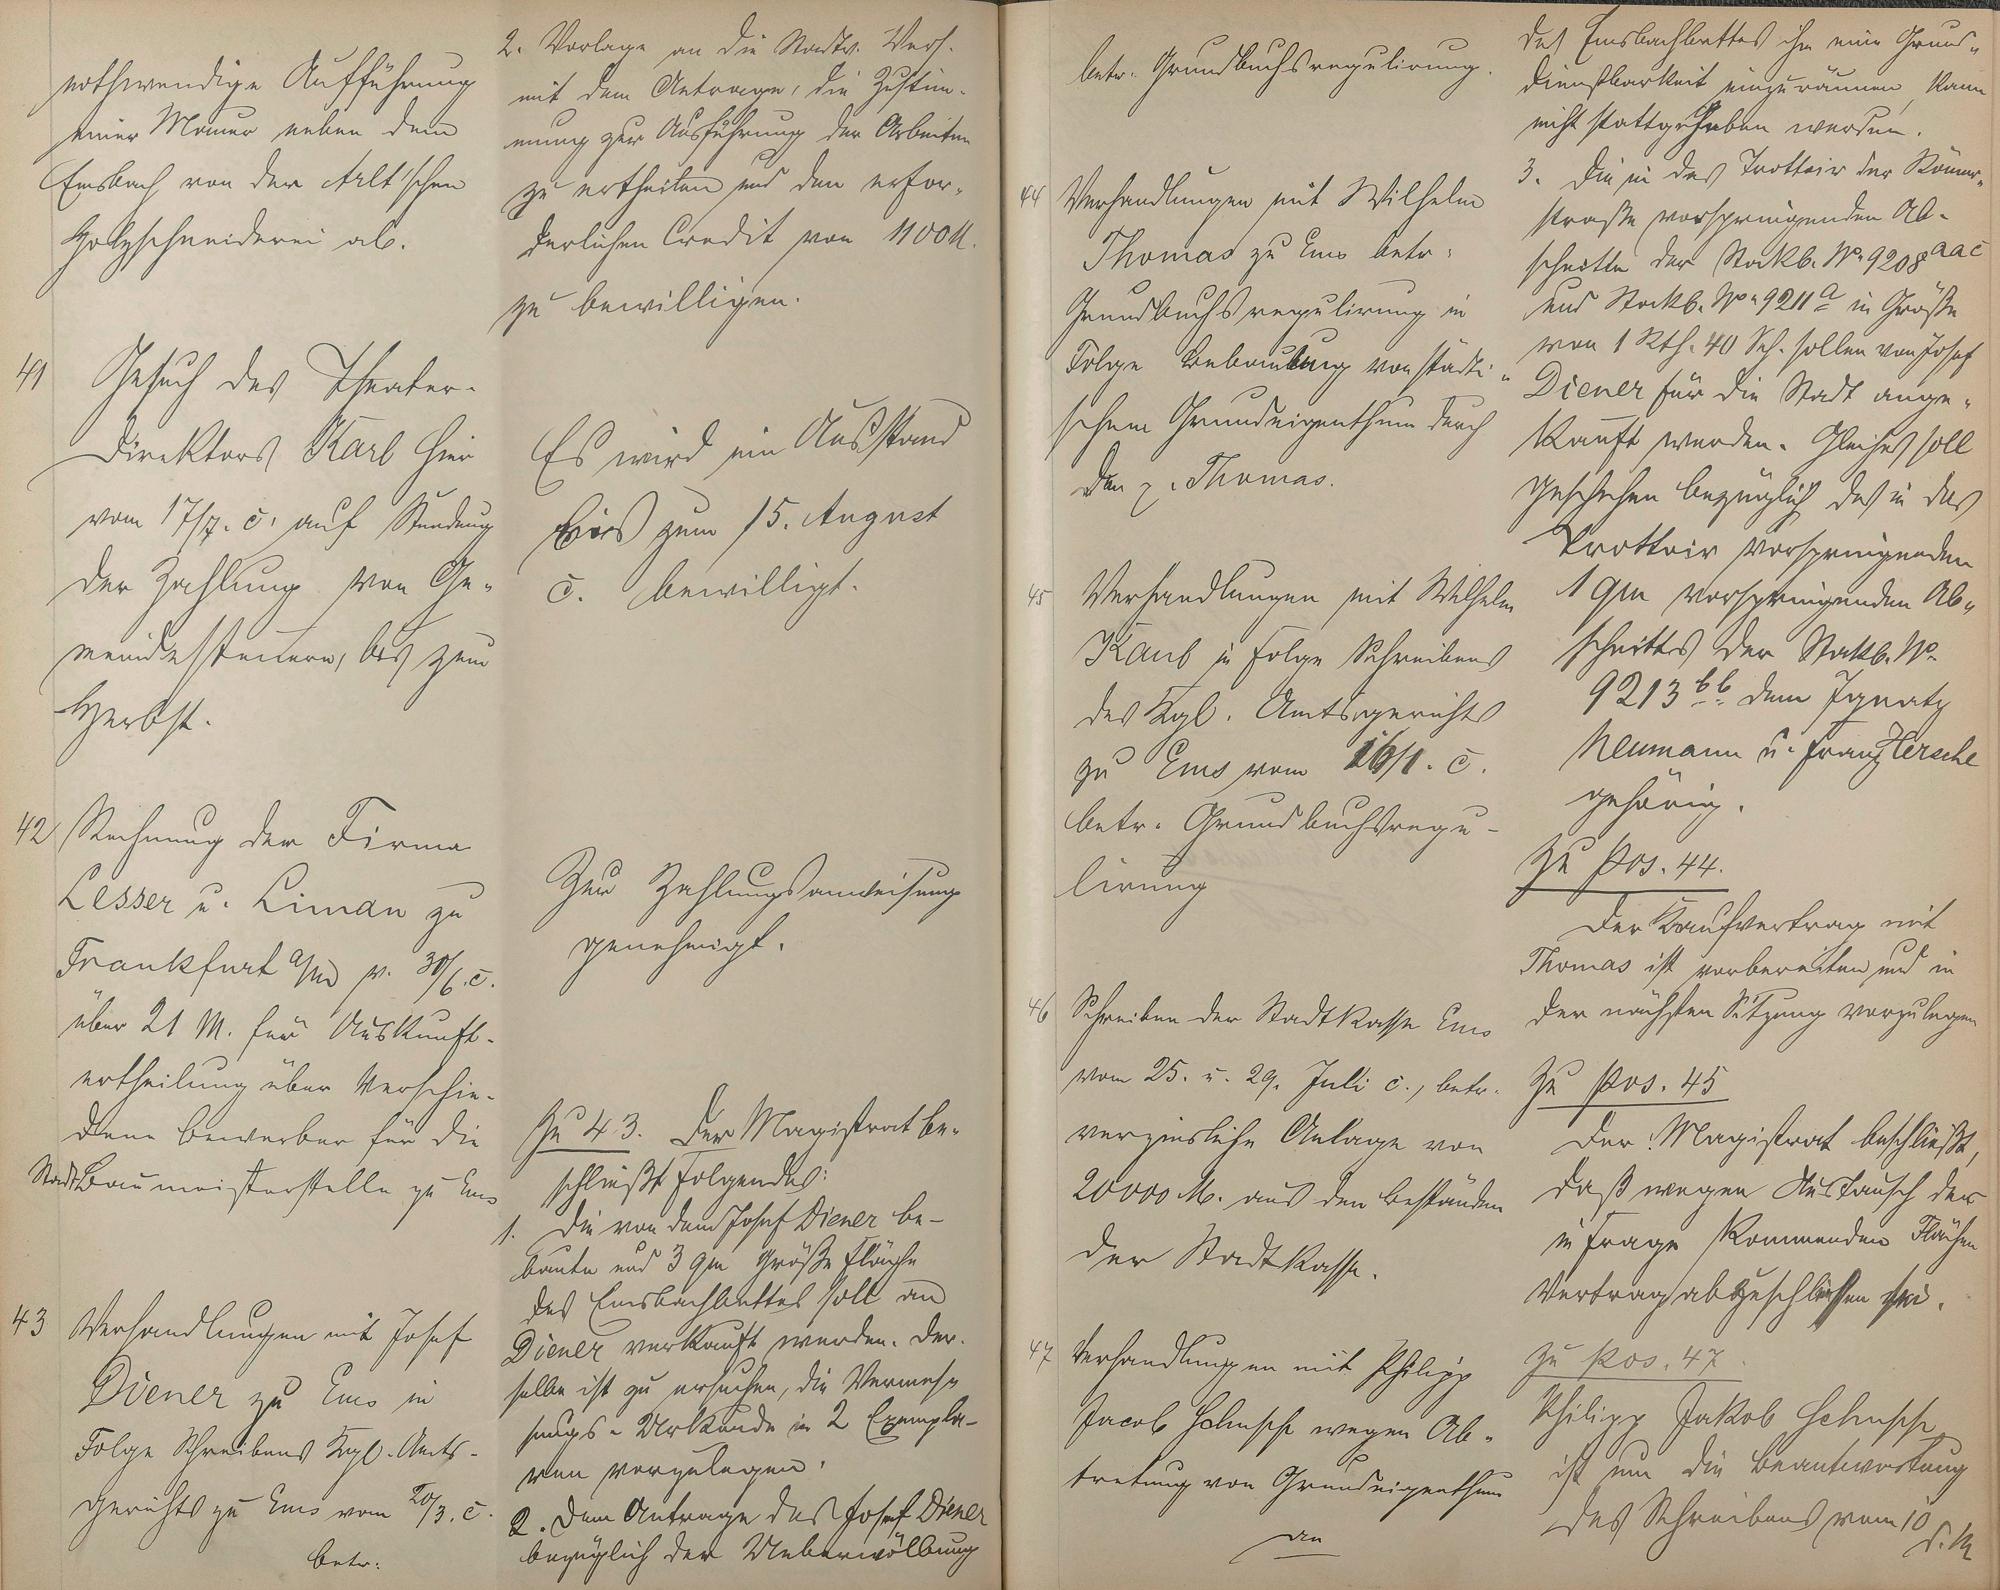 nothwendige Aufführung
einer Mauer neben dem
Emsbach von der Arlt'schen
Holzschneiderei ab.
41 Gesuch des Theater-
direktors Karl hier
vom 17/7. c. auf Stundung
der Zahlung von Ge-
meindesteuern, bis zum
Herbst.
42 Rechnung der Firma
Lesser u. Liman zu
Frankfurt a/M v. 30/6. c.
über 21 M. für Auskunft-
ertheilung über verschie-
dene Bewerber für die
Stadtbaumeisterstelle zu Ems
43 Verhandlungen mit Josef
Diener zu Ems in
Folge Schreibens Kgl. Amts-
gerichts zu Ems vom 20/3. c.
betr.
2. Vorlage an die Stadtv. Vers.
mit dem Antrage, die Zustim-
mung zur Ausführung der Arbeiten
zu ertheilen und den erfor-
derlichen Credit von 1100 M.
zu bewilligen.
Es wird ein Ausstand
bis zum 15. August
c. bewilligt.
Zur Zahlungsanweisung
genehmigt.
Zu 43. Der Magistrat be-
schließt Folgendes:
1. Die von dem Josef Diener be-
baute und 3 qm große Fläche
des Emsbachbettes soll an
Diener verkauft werden. Der-
selbe ist zu ersuchen, die Vermes-
sungs-Urkunde in 2 Exempla-
ren vorzulegen.
2. Dem Antrage des Josef Diener
bezüglich der Ueberwölbung
betr. Grundbuchsregulirung.
44 Verhandlungen mit Wilhelm
Thomas zu Ems betr.
Grundbuchsregulirung in
Folge Bebauung von städti-
schem Grundeigenthum durch
den p. Thomas.
45 Verhandlungen mit Wilhelm
Kaub in Folge Schreibens
des Kgl. Amtsgerichts
zu Ems vom 16/1. c.
betr. Grundbuchsregu-
lirung
46 Schreiben der Stadtkasse Ems
vom 25. u. 29. Juli c., betr.
verzinsliche Anlage von
20000 M. aus den Beständen
der Stadtkasse.
47 Verhandlungen mit Philipp
Jacob wegen Ab-
tretung von Grundeigenthum
an
des Emsbachbettes ihm eine Grund-
dienstbarkeit einzuräumen, kann
nicht stattgegeben werden.
3. Die in das Trottoir der Römer-
straße vorspringenden Ab-
schnitte der Stockb. No 9208 aac
und Stockb. No 9211 a in Größe
von 1 Rth. 40 Sch. sollen von Josef
Diener für die Stadt ange-
kauft werden. Gleiches soll
geschehen bezüglich des in das
Trottoir vorspringenden
1 qm vorspringenden Ab-
schnittes der Stockb. No
9213 bb dem Ignatz
Neumann u. Franz Hersche
gehörig.
Zu Pos. 44.
Der Kaufvertrag mit
Thomas ist vorbereiten und in
der nächsten Sitzung vorzulegen
Zu Pos. 45
Der Magistrat beschließt,
daß wegen Austausch der
in Frage kommenden Flächen
Vertrag abzuschließen sei.
Zu Pos. 47.
Philipp Jakob
ist um die Beantwortung
des Schreibens vom 10
d. M